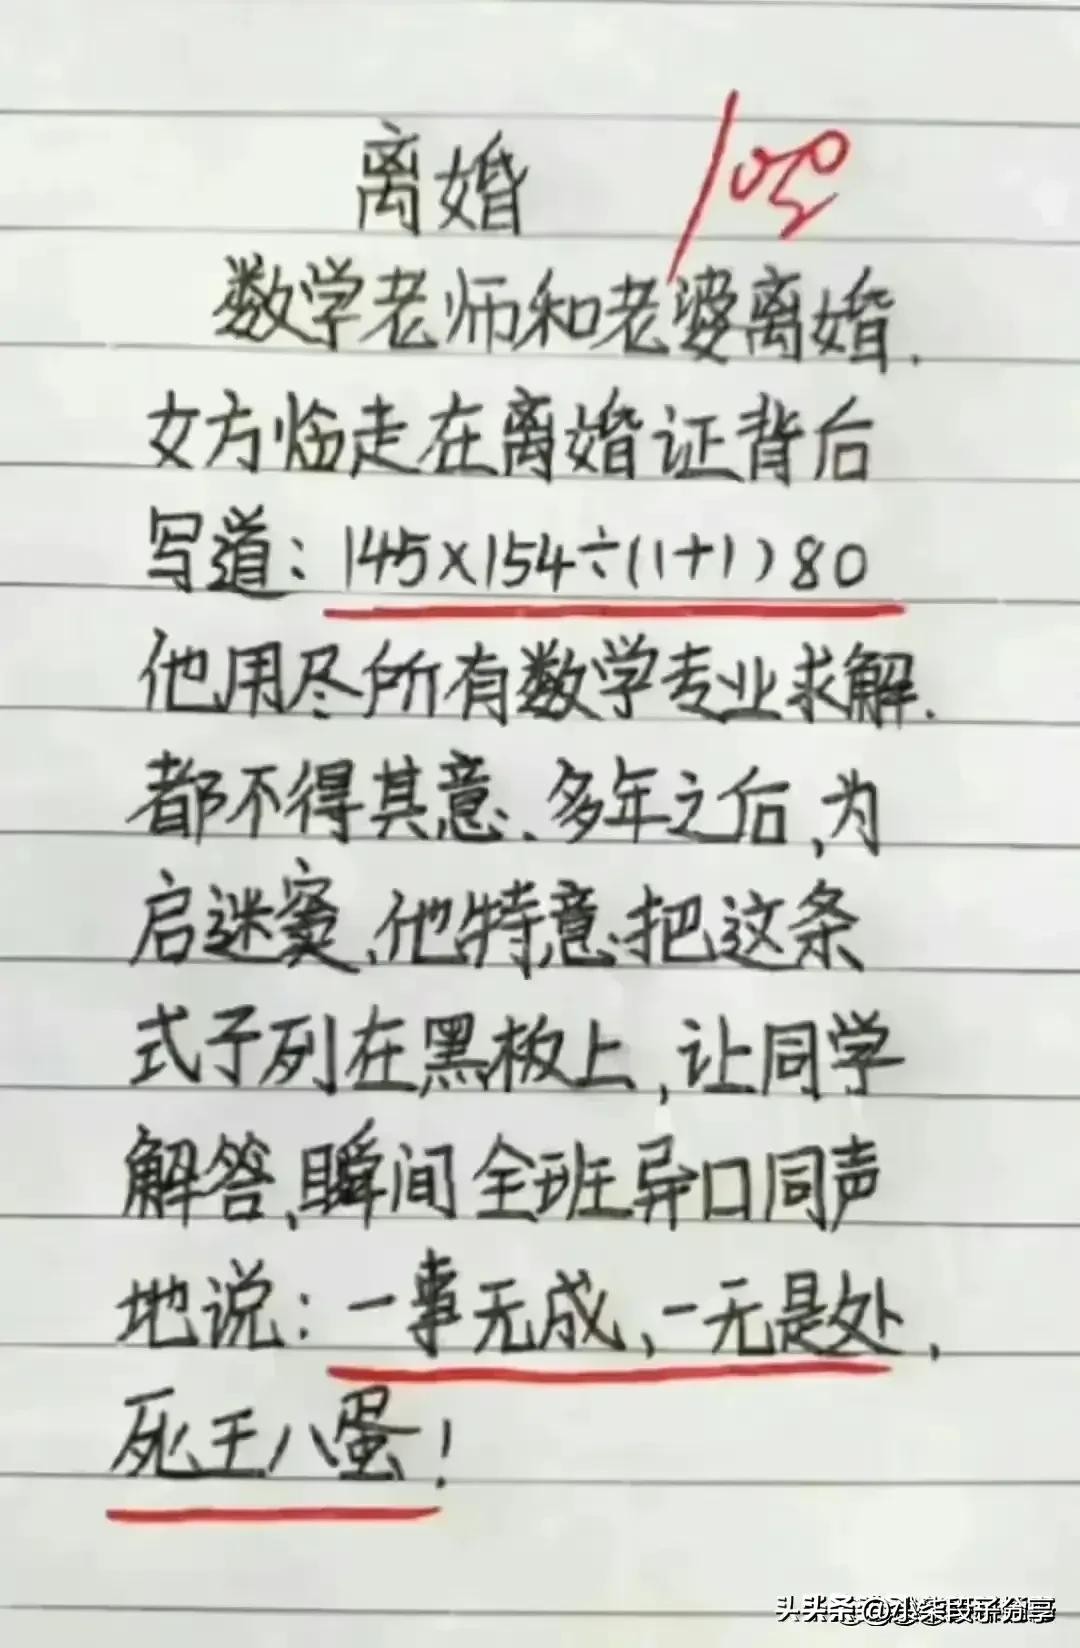 离婚
100
数学老师和老婆离婚.
女方临走在离婚证背后
写道：145×154÷(1+1)80
他用尽所有数学专业求解.
都不得其意、多年之后,为
启迷案、他特意把这条
式子列在黑板上,让同学
解答、瞬间全班异口同声
地说：一事无成、一无是处,
死王八蛋!